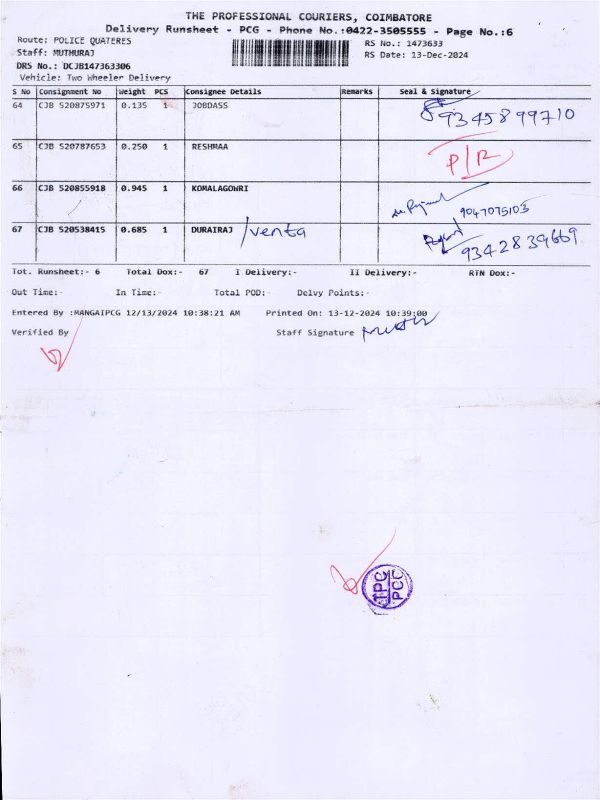 THE PROFESSIONAL COURIERS, COIMBATORE
Delivery Runsheet - PCG - Phone No.:0422-3505555 - Page No.:6
Route: POLICE QUATERES
RS No.: 1473633
Staff: MUTHURAJ
RS Date: 13-Dec-2024
DRS No.: DCJB147363306
Vehicle: Two Wheeler Delivery
S No Consignment No Weight PCS Consignee Details Remarks Seal & Signature
64 CJB 520875971 0.135 1 JOBDASS 9345899710
65 CJB 520787653 0.250 1 RESHMAA P/R
66 CJB 520855918 0.945 1 KOMALAGOWRI 9047075103
67 CJB 520538415 0.685 1 DURAIRAJ /venta 9342839669
Tot. Runsheet:- 6 Total Dox:- 67 I Delivery:- II Delivery:- RTN Dox:-
Out Time:- In Time:- Total POD:- Delvy Points:-
Entered By :MANGAIPCG 12/13/2024 10:38:21 AM Printed On: 13-12-2024 10:39:00
Verified By Staff Signature
TPC
PCC